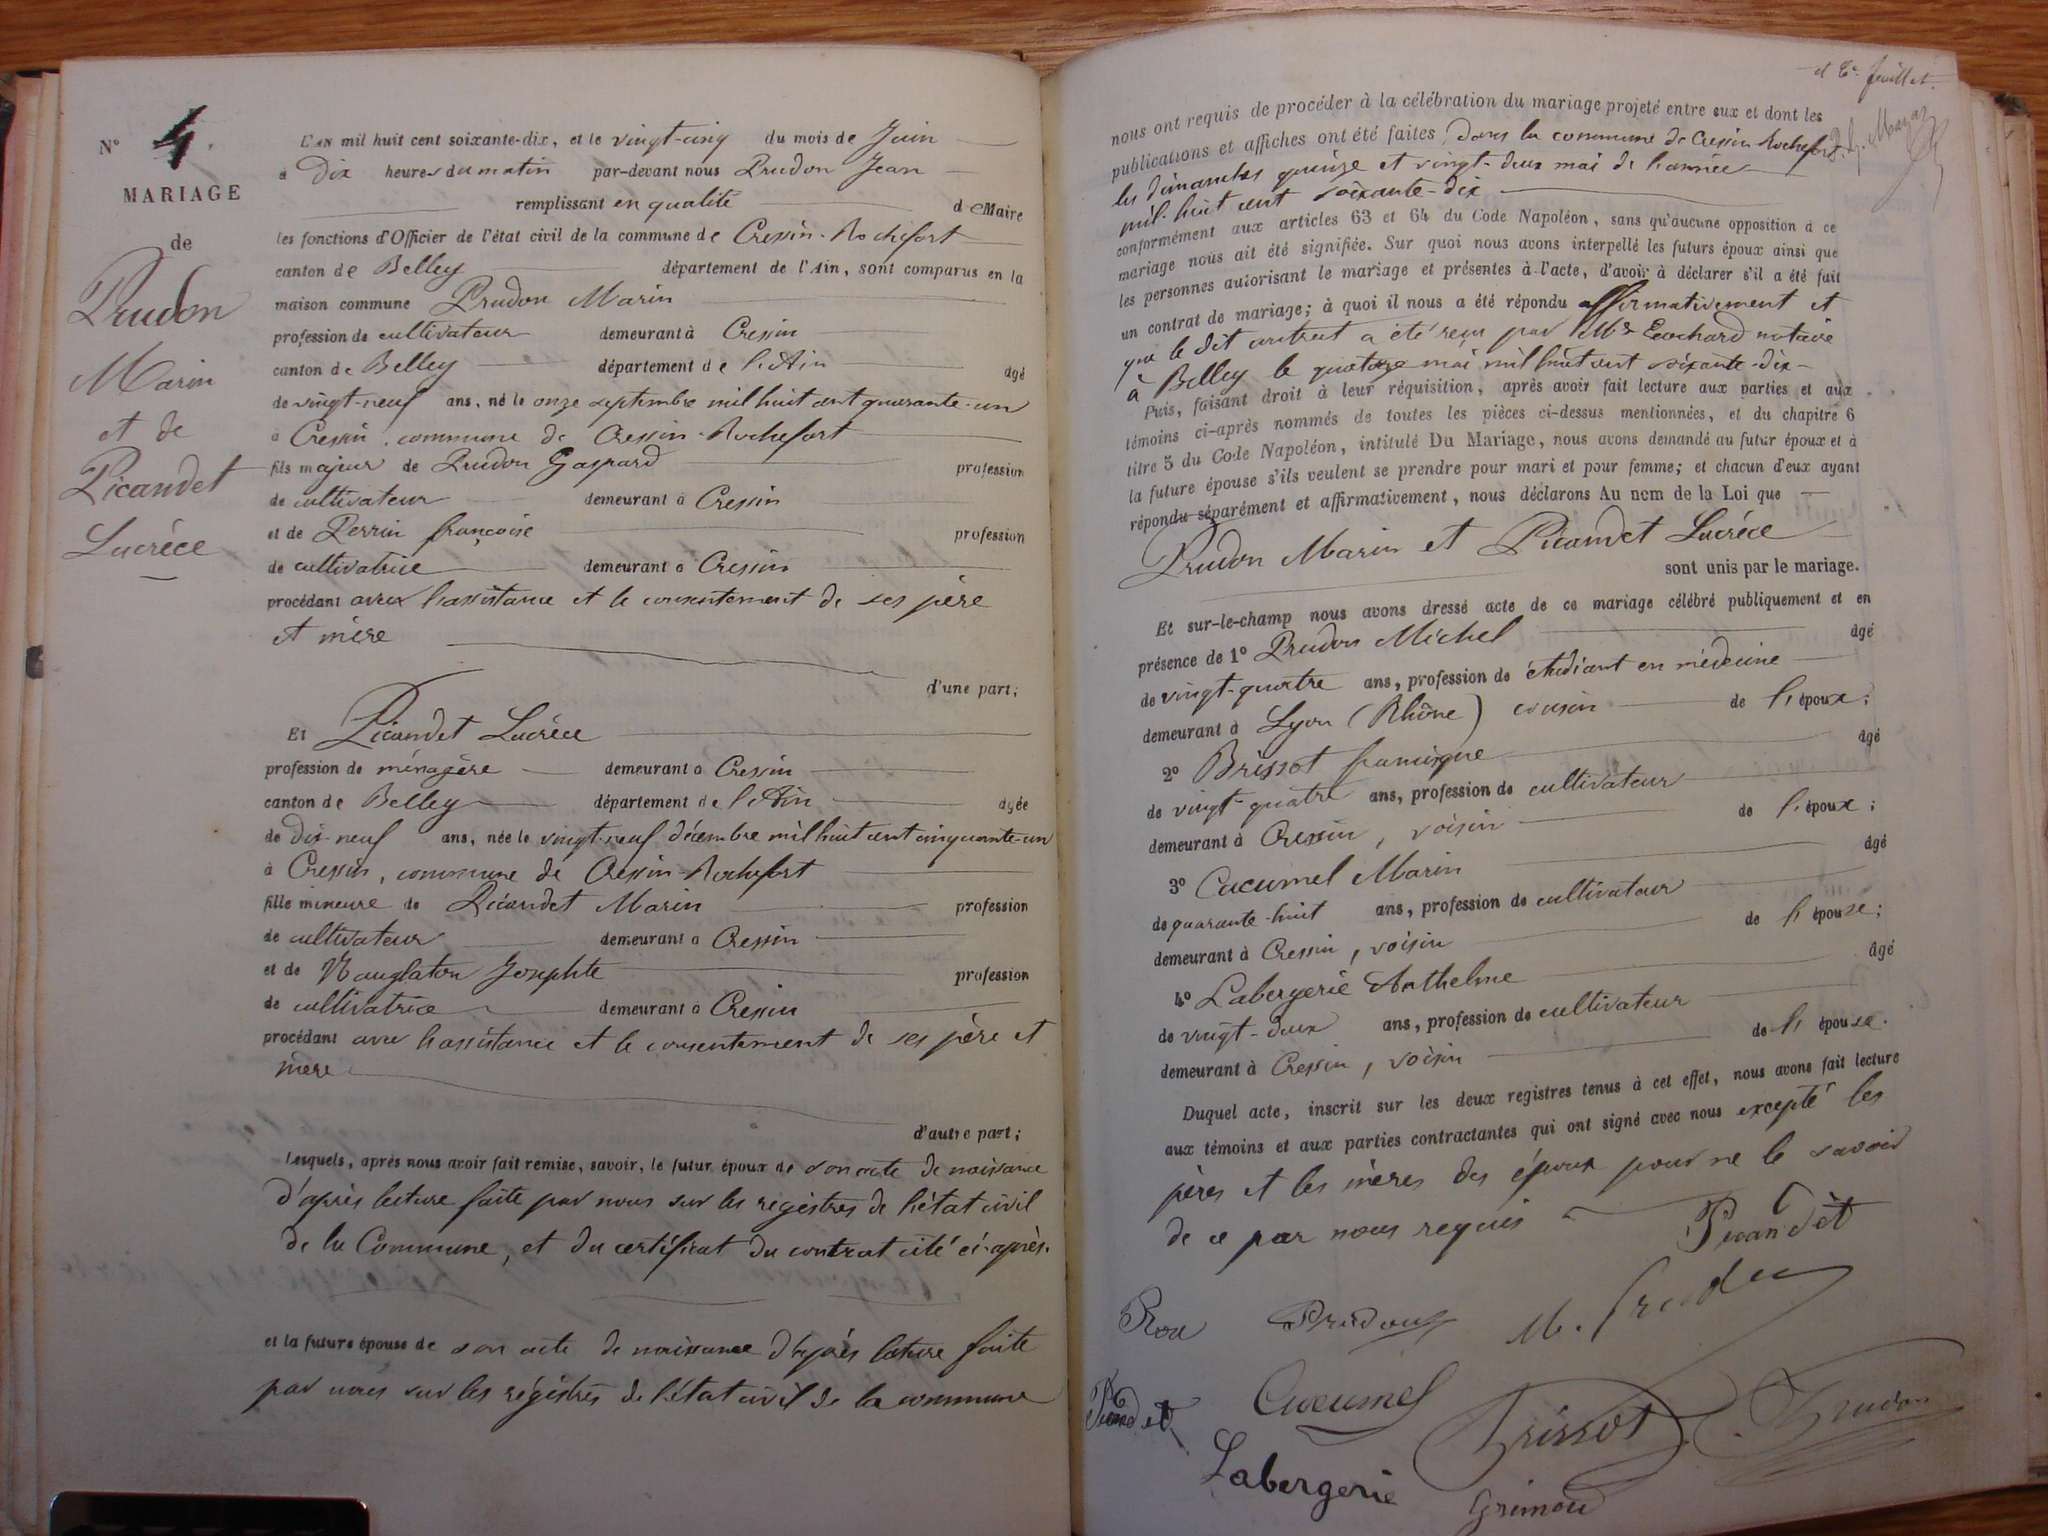 N° 4.
MARIAGE
de
Prudon
Marin
et de
Picandet
Lucrèce
L'AN mil huit cent soixante-dix, et le vingt-cinq du mois de Juin
à dix heures du matin par-devant nous Prudon Jean
remplissant en qualité de Maire
les fonctions d'Officier de l'état civil de la commune de Cressin-Rochefort
canton de Belley département de l'Ain, sont comparus en la
maison commune Prudon Marin
profession de cultivateur demeurant à Cressin
canton de Belley département de l'Ain âgé
de vingt-neuf ans, né le onze septembre mil huit cent quarante-un
à Cressin, commune de Cressin-Rochefort
fils majeur de Prudon Gaspard profession
de cultivateur demeurant à Cressin
et de Perrin françoise profession
de cultivatrice demeurant à Cressin
procédant avec l'assistance et le consentement de ses père
et mère
d'une part;
Et Picandet Lucrèce
profession de ménagère demeurant à Cressin
canton de Belley département de l'Ain âgée
de dix-neuf ans, née le vingt-neuf décembre mil huit cent cinquante-un
à Cressin, commune de Cressin-Rochefort
fille mineure de Picandet Marin profession
de cultivateur demeurant à Cressin
et de Nauglaton Josephte profession
de cultivatrice demeurant à Cressin
procédant avec l'assistance et le consentement de ses père et
mère
d'autre part;
Lesquels, après nous avoir fait remise, savoir, le futur époux de son acte de naissance
d'après lecture faite par nous sur les registres de l'état civil
de la Commune, et du certificat du contrat cité ci-après.
et la future épouse de son acte de naissance d'après lecture faite
par nous sur les régistres de l'état civil de la commune
et feuillet.
nous ont requis de procéder à la célébration du mariage projeté entre eux et dont les
publications et affiches ont été faites, dans la commune de Cressin-Rochefort
les dimanches quinze et vingt-deux mai de l'année
mil-huit cent soixante-dix
conformément aux articles 63 et 64 du Code Napoléon, sans qu'aucune opposition à ce
mariage nous ait été signifiée. Sur quoi nous avons interpellé les futurs époux ainsi que
les personnes autorisant le mariage et présentes à l'acte, d'avoir à déclarer s'il a été fait
un contrat de mariage; à quoi il nous a été répondu affirmativement et
que le dit contrat a été reçu par Me notaire
à Belley le quatorze mai mil huit cent soixante-dix
Puis, faisant droit à leur réquisition, après avoir fait lecture aux parties et aux
témoins ci-après nommés de toutes les pièces ci-dessus mentionnées, et du chapitre 6
titre 5 du Code Napoléon, intitulé Du Mariage, nous avons demandé au futur époux et à
la future épouse s'ils veulent se prendre pour mari et pour femme; et chacun d'eux ayant
répondu séparément et affirmativement, nous déclarons Au nom de la Loi que
Prudon Marin et Picandet Lucrèce
sont unis par le mariage.
Et sur-le-champ nous avons dressé acte de ce mariage célébré publiquement et en
présence de 1° Prudon Michel âgé
de vingt-quatre ans, profession de étudiant en médecine
demeurant à Lyon (Rhône) cousin de l'époux;
2° Brissot âgé
de vingt-quatre ans, profession de cultivateur
demeurant à Cressin, voisin de l'époux;
3° Cucumel Marin âgé
de quarante-huit ans, profession de cultivateur
demeurant à Cressin, voisin de l'épouse;
4° Labergerie Anthelme âgé
de vingt-deux ans, profession de cultivateur
demeurant à Cressin, voisin de l'épouse.
Duquel acte, inscrit sur les deux registres tenus à cet effet, nous avons fait lecture
aux témoins et aux parties contractantes qui ont signé avec nous excepté les
pères et les mères des époux pour ne le savoir
de ce par nous requis
Picandet
Prudon
Cucumel
Brissot
Prudon
Labergerie
Grimond